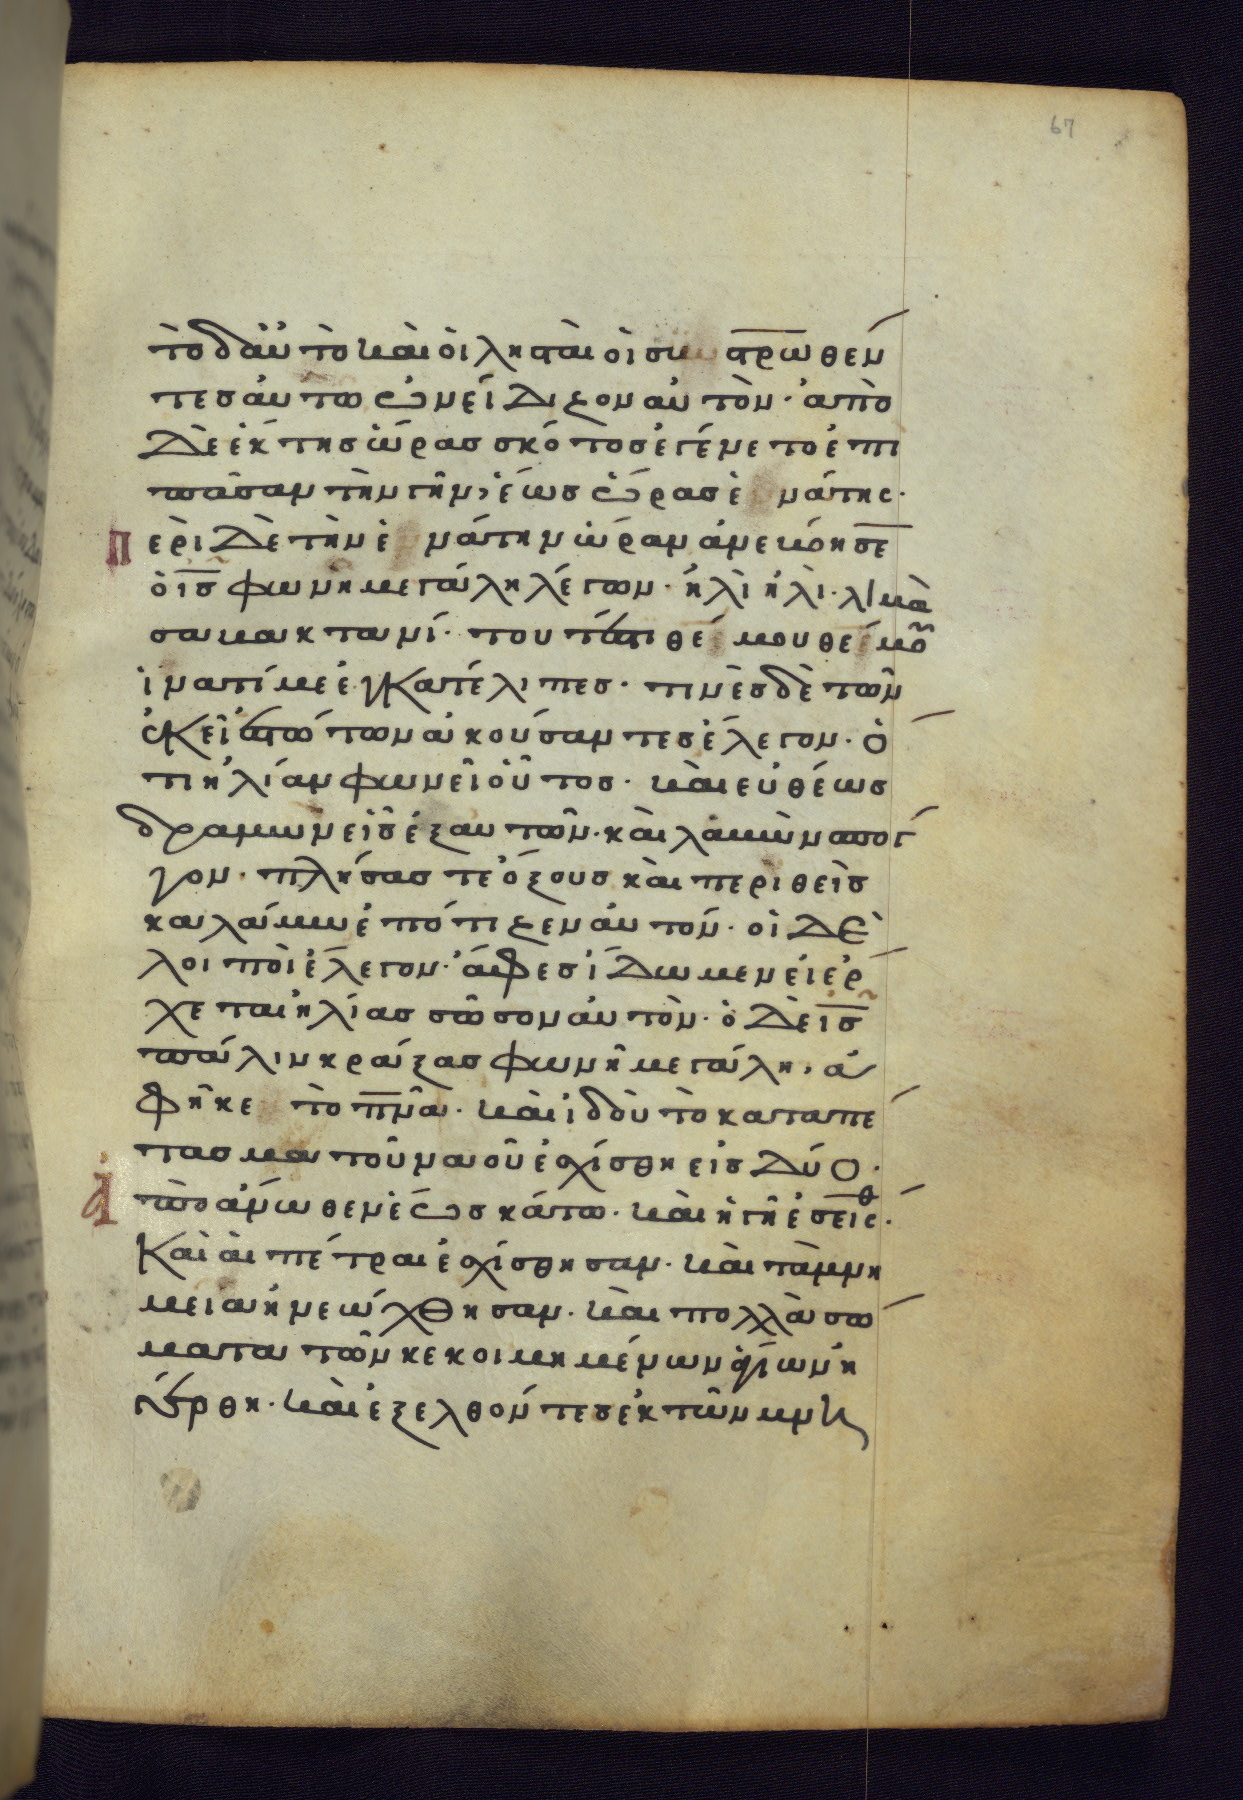 67
τὸ δ' ἀυτὸ καὶ ὁι λησταὶ ὁι συ στρωθέν
τες ἀυτῶ ὠνείδιζον αὐτὸν· ἀπὸ
δὲ ἕκτης ὥρας σκότος ἐγένετο ἐπι
πᾶσαν τὴν γῆν, ἑως ὥρας ἐ νάτης·
Περὶ δὲ τὴν ἐ νάτην ὥραν ἀνεβόησε
ὁ ις φωνη μεγάλη λέγων· ἠλὶ ἠλὶ· λιμὰ
σαβαχθανί· τουτέστι θέ μου θέ μοῦ
ἱνατί με ἐγκατέλιπες· τινὲς δὲ τῶν
ἐκεῖ ἑστώτων ἀκούσαντες ἔλεγον· ὁ
τι ἠλίαν φωνεῖ οὗτος· καὶ εὐθέως
δραμὼν εἷς ἐξ αυτῶν· καὶ λαβὼν σπόγ
γον· πλήσας τε ὄξους καὶ περιθεὶς
καλάμω ἐπότιζεν ἀυτόν· οἱ δὲ
λοιποὶ ἔλεγον· ἄφες ἴδωμεν ἐι ἔρ
χεται ἠλίας σῶσον ἀυτὸν· ὁ δὲ ις
πάλιν κράξας φωνῆ μεγάλη, ἀ
φῆκε τὸ πνᾶ· καὶ ἰδοὺ τὸ καταπε
τασμα τοῦ ναοῦ ἐσχίσθη εἰς δύο·
Ἀπὸ ἄνωθεν ἑως κάτω· καὶ ἡ γῆ ἐσείσθ·
Καὶ ἁι πέτραι ἐσχίσθησαν· καὶ τὰ μνη
μεια ἠνεώχθησαν· καὶ πολλὰ σω
ματα τῶν κεκοιμημένων ἁγίων ἠ
γέρθη· καὶ ἐξελθόντες ἐκ τῶν μνη